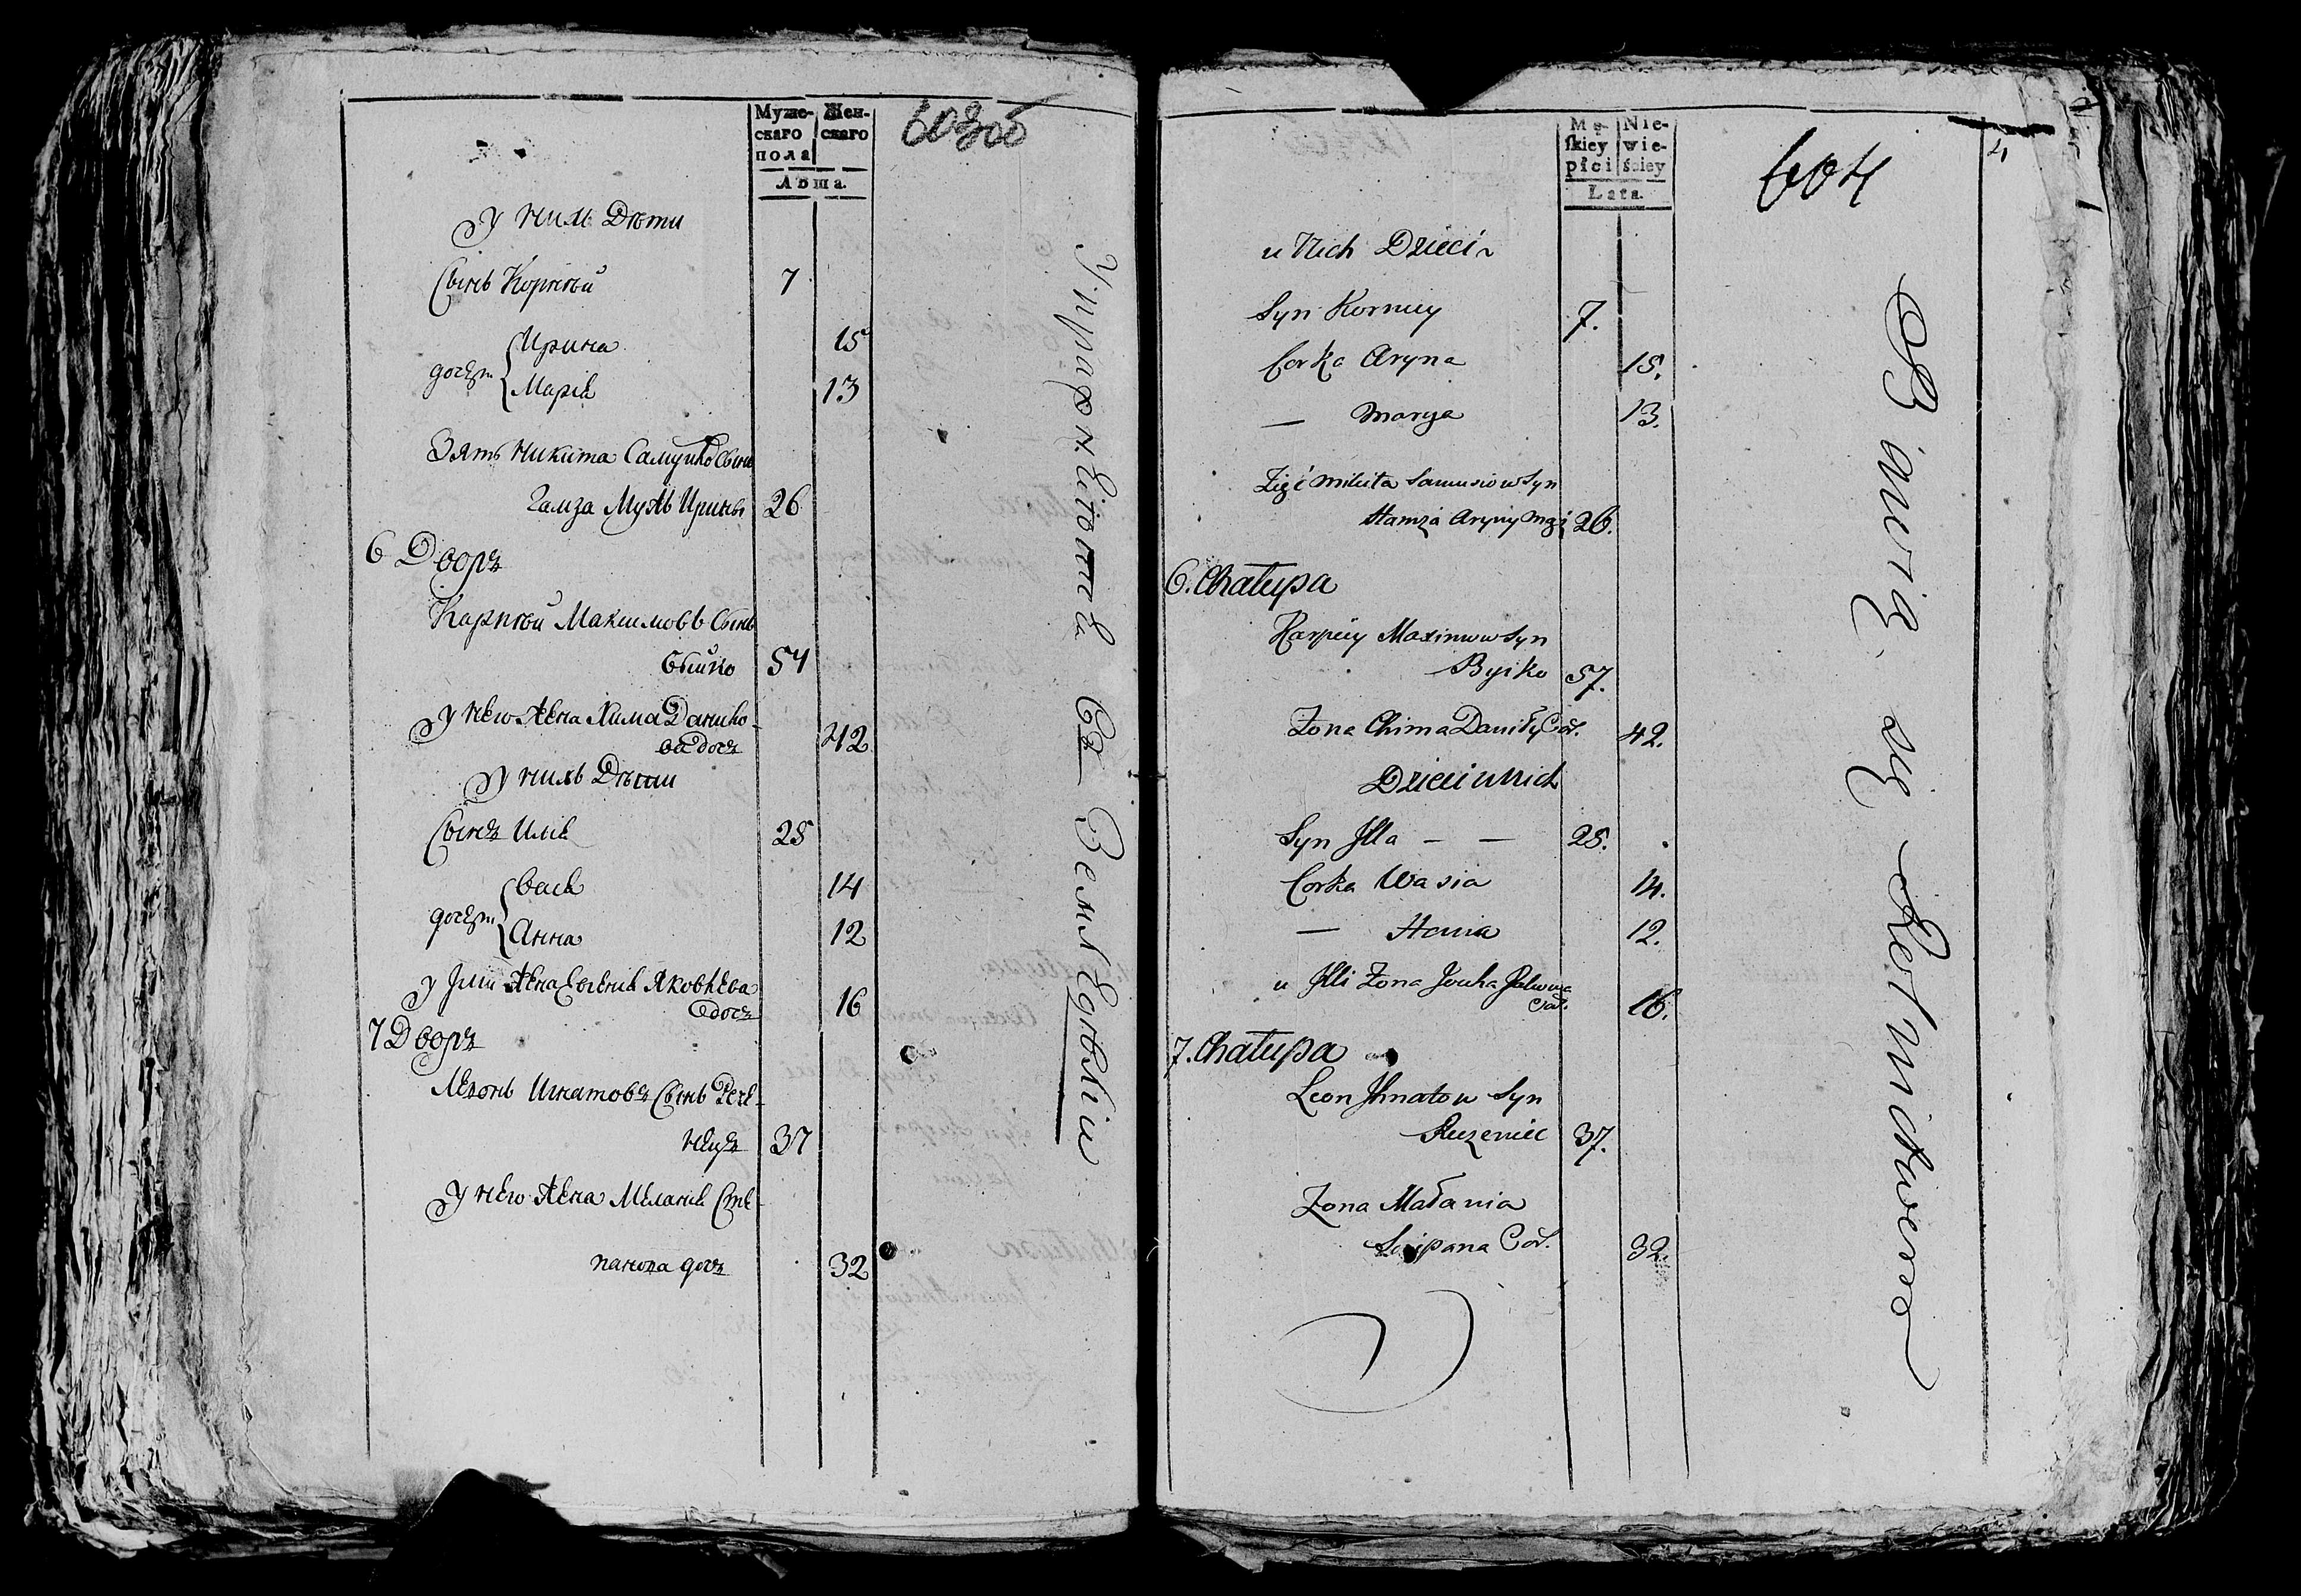 Муже-
скаго
пола
Жен-
скаго
Лѣта.
603об
У нихъ Дѣти
Сынъ Корнѣй 7
дочери Ирина 15
Марія 13
Зять Никита Самуйловъ Сынъ
Гамза Мужъ Ирины 26
6 Дворъ
Карпѣй Максимовъ Сынъ
Быйко 57
У него Жена Хима Данило-
ва дочь 42
У нихъ Дѣти
Сынъ Илія 25
дочери Вася 14
Анна 12
У Иліи Жена Евгенія Яковлева
дочь 16
7 Дворъ
Леонъ Игнатовъ Сынъ
37
У него Жена Меланія Сте-
панова дочь 32
съ Землею
Mę-
ſkiey
płci
Nie-
wie-
ściey
Lata.
604
4
u Nich Dzieci
Syn Korniey 7.
Corka Aryna 15.
— Marya 13.
Zięć Mikita Samusiow Syn
Hamza Aryny Mąż 26.
6. Chałupa
Karpiey Maximow Syn
Byiko 57.
Zona Chima Daniły Cór. 42.
Dzieci u Nich
Syn Jlla — — 25.
Corka Wasia 14.
— Hania 12.
u Jlli Zona Jouha
Cór. 16.
7. Chałupa
Leon Jhnatow Syn
37.
Zona Małania
Scipana Cór. 32.